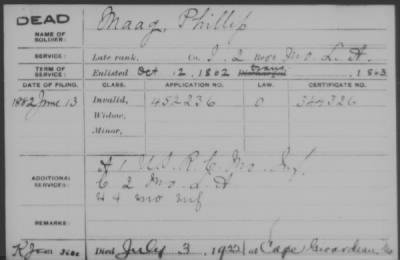 DEAD
NAME OF SOLDIER: Maag, Phillip
SERVICE: Late rank, Co. I, 2 Reg't Mo. L. A.
TERM OF SERVICE: Enlisted Oct 12, 1862 trans. Discharged , 1863
DATE OF FILING. CLASS. APPLICATION NO. LAW. CERTIFICATE NO.
1882 June 13 Invalid, 452236 0 344326
Widow,
Minor,
ADDITIONAL SERVICES: A 1 U.S.R.C. Mo. Inf.
C 2 Mo L A
44 mo inf
REMARKS:
Died July 3, 1922 at Cape Girardeau, Mo